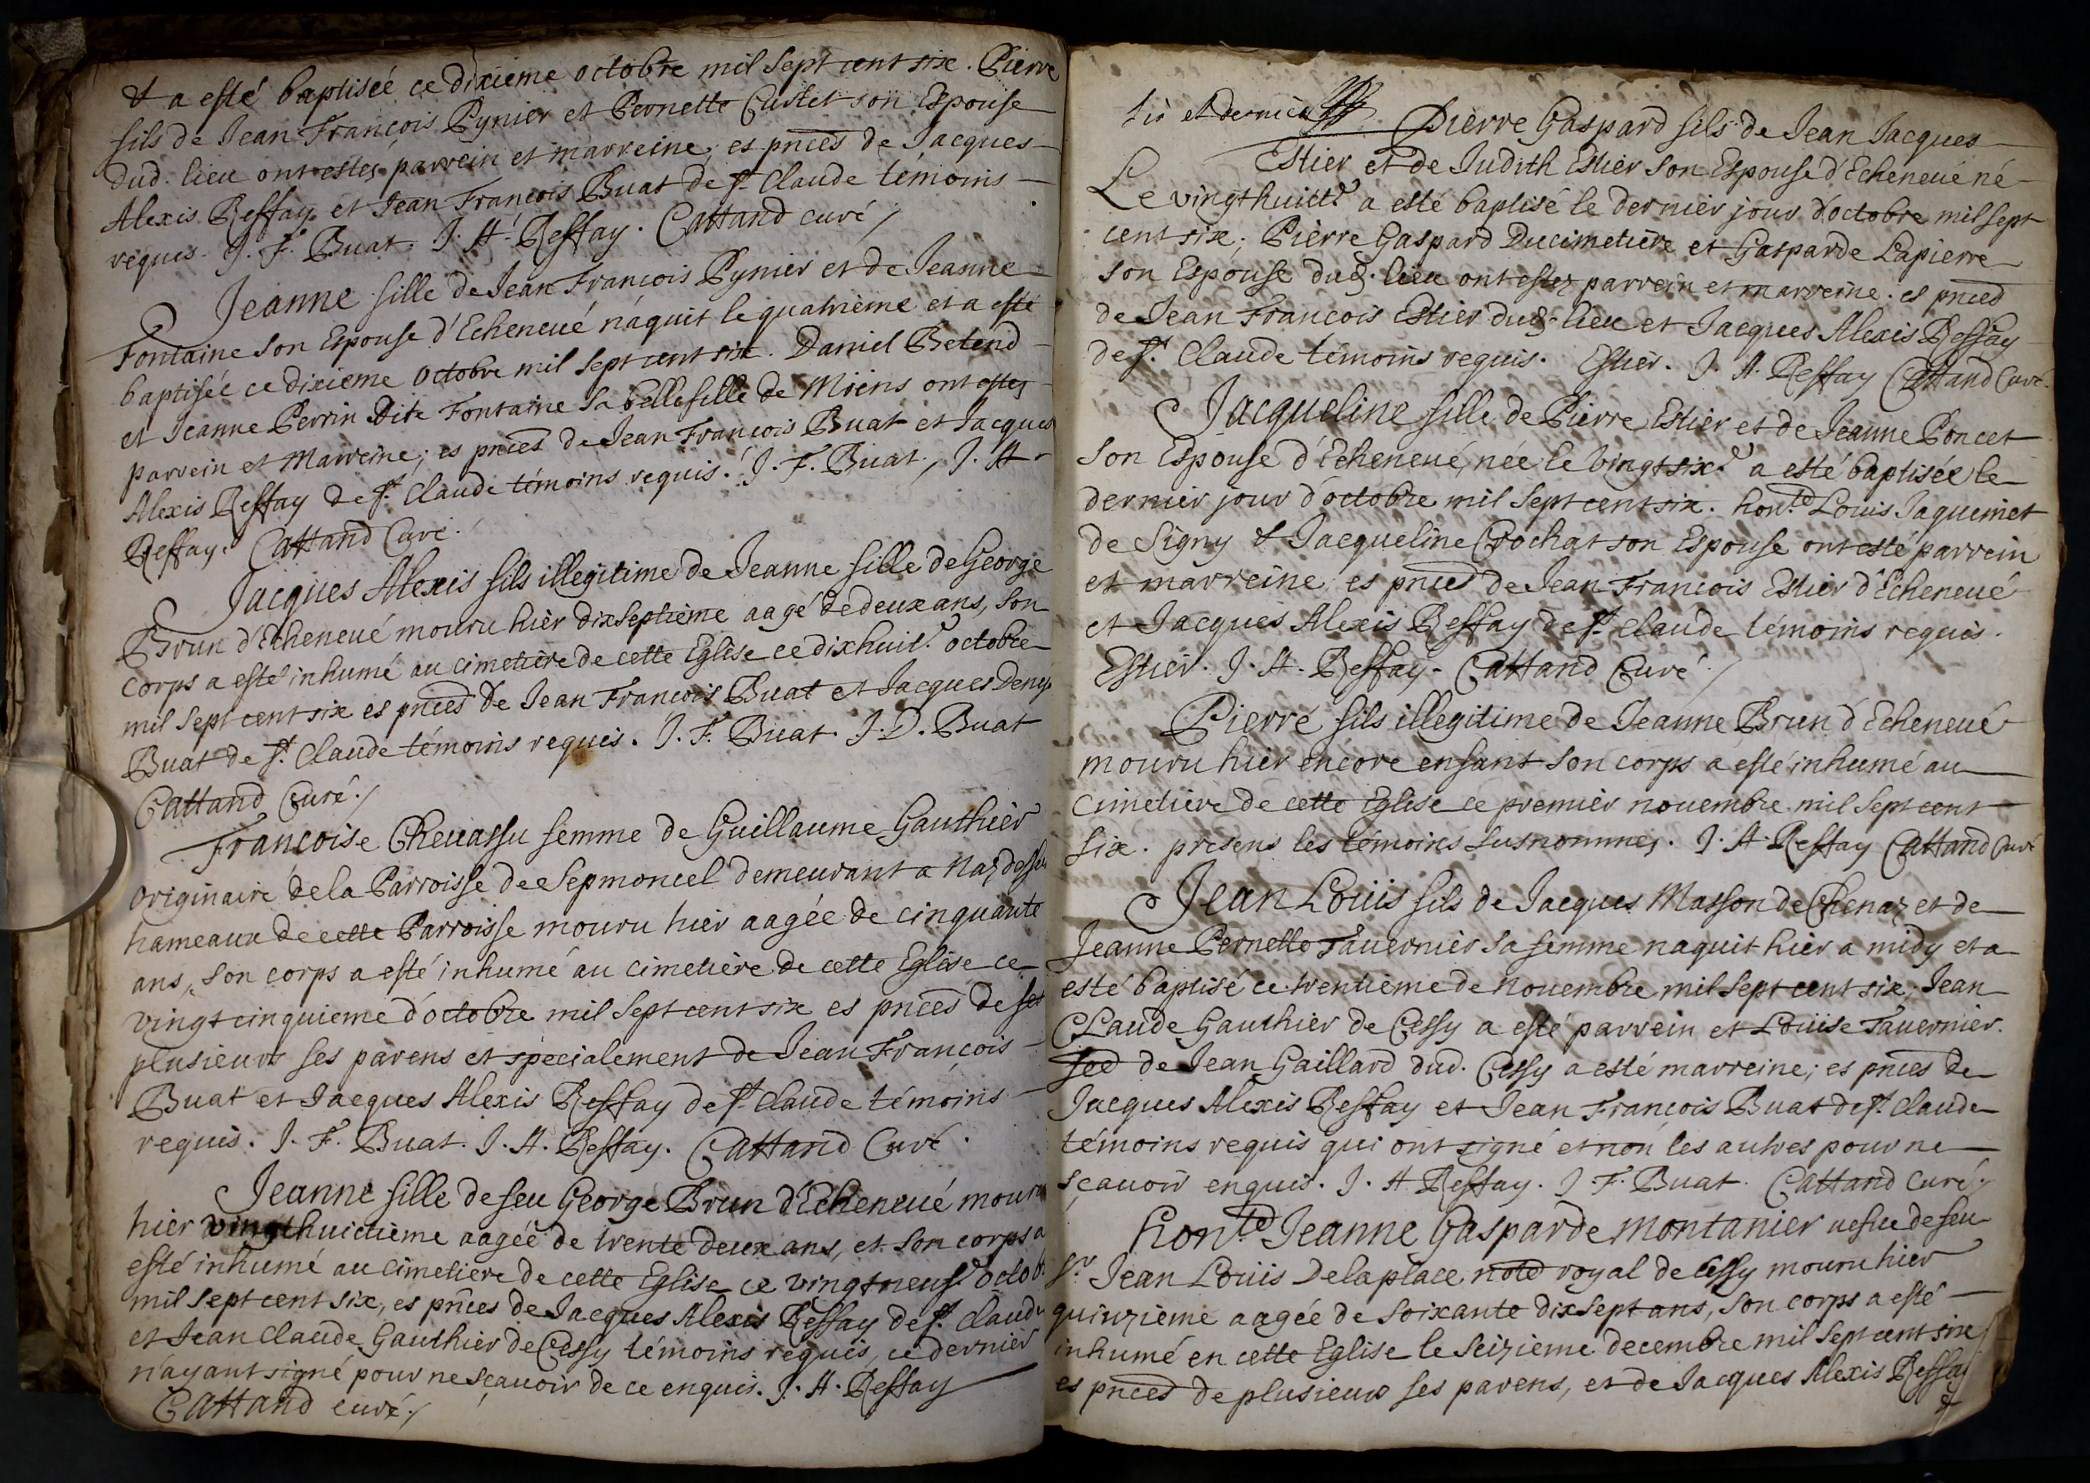 & a esté baptisée ce dixieme octobre mil sept cent six. Pierre
fils de Jean François Pynier et Pernette Custet son Espouse
dud. lieu ont estez parrein et marreine; es pnces de Jacques
Alexis Reffay et Jean François Buat de st Claude témoins
requis. J. F. Buat. J. A. Reffay. Cattand curé /
Jeanne fille de Jean François Pynier et de Jeanne
Fontaine son Espouse d'Echenevé náquit le quatrième et a esté
baptisée ce dixieme octobre mil sept cent six. Daniel Betend
et Jeanne Perrin Dite Fontaine sa belle fille de Moëns ont estez
parrein et Marreine; es pnces de Jean François Buat et Jacques
Alexis Reffay de st. Claude témoins requis. J. F. Buat, J. A
Reffay. Cattand Curé.
Jacques Alexis fils illegitime de Jeanne fille de George
Brun d'Echenevé mouru hier dixseptieme aagé de deux ans, son
corps a esté inhumé au cimetière de cette Eglise ce dixhuite octobre
mil sept cent six es pnces de Jean François Buat et Jacques Denys
Buat de st. Claude témoins requis. J. F. Buat. J. D. Buat
Cattand Curé. /
Françoise Chevassu femme de Guillaume Gauthier
originaire de la Parroisse de Sepmoncel demeurant a Naz dessu
hameaux de cette Parroisse mouru hier aagée de cinquante
ans, son corps a esté inhumé au cimetière de cette Eglise ce
vingt cinquieme d'octobre mil sept cent six es pnces de
plusieurs ses parens et specialement de Jean François
Buat et Jacques Alexis Reffay de st Claude témoins
requis. J. F. Buat. J. A. Reffay. Cattand Curé.
Jeanne fille de feu George Brun d'Echenevé mouru
hier vingthuictième aagée de trente deux ans, et son corps a
esté inhumé au cimetiere de cette Eglise ce vingtneufe octob.
mil sept cent six, es pnces de Jacques Alexis Reffay de st. Claude
et Jean Claude Gauthier de Cessy témoins requis, ce dernier
n'ayant signé pour ne sçavoir de ce enquis. J. A. Reffay
Cattand curé. /
et dernier
Pierre Gaspard fils de Jean Jacques
Estier et de Judith Estier son Espouse d'Echenevé né
Le vingthuicte a esté baptisé le dernier jour d'octobre mil sept
cent six. Pierre Gaspard Ducimetière et Gasparde Lapierre
son Espouse dud. lieu ont estez parrein et marreine. es pnces
de Jean François Estier dud. lieu et Jacques Alexis Reffay
de st. Claude témoins requis. Estier. J. A. Reffay Cattand Curé.
Jacqueline fille de Pierre Estier et de Jeanne Poncet
son Espouse d'Echenevé, née le vingtsixe a esté baptisée le
dernier jour d'octobre mil sept cent six. honte Louis Jaquemet
de Signy & Jacqueline Crochat son Espouse ont esté parrein
et marreine es pnces de Jean François Estier d'Echenevé
et Jacques Alexis Reffay de st Claude témoins requis.
Estier. J. A. Reffay. Cattand Curé. /
Pierre fils illegitime de Jeanne Brun d'Echenevé
mouru hier encore enfant son corps a esté inhumé au
cimetiere de cette Eglise ce premier novembre mil sept cent
six. presens les témoins susnommez. J. A. Reffay Cattand Curé
Jean Loüis fils de Jacques Masson de Chenaz et de
Jeanne Pernette Tavernier sa femme naquit hier a midy et a
esté baptisé ce trentieme de novembre mil sept cent six; Jean
Claude Gauthier de Cessy a esté parrein et Loüise Tavernier
de Jean Gaillard dud. Cessy a esté marreine; es pnces de
Jacques Alexis Reffay et Jean François Buat de st. Claude
témoins requis qui ont signé et non les autres pour ne
sçavoir enquis. J. A Reffay. J F. Buat. Cattand Curé. /
Honte Jeanne Gasparde Montanier vefve de feu
sr. Jean Loüis Delaplace note royal de Cessy mouru hier
quinzieme aagée de soixante dix sept ans, son corps a esté
inhumé en cette Eglise le seizieme decembre mil sept cent six
es pnces de plusieurs ses parens, et de Jacques Alexis Reffay
&